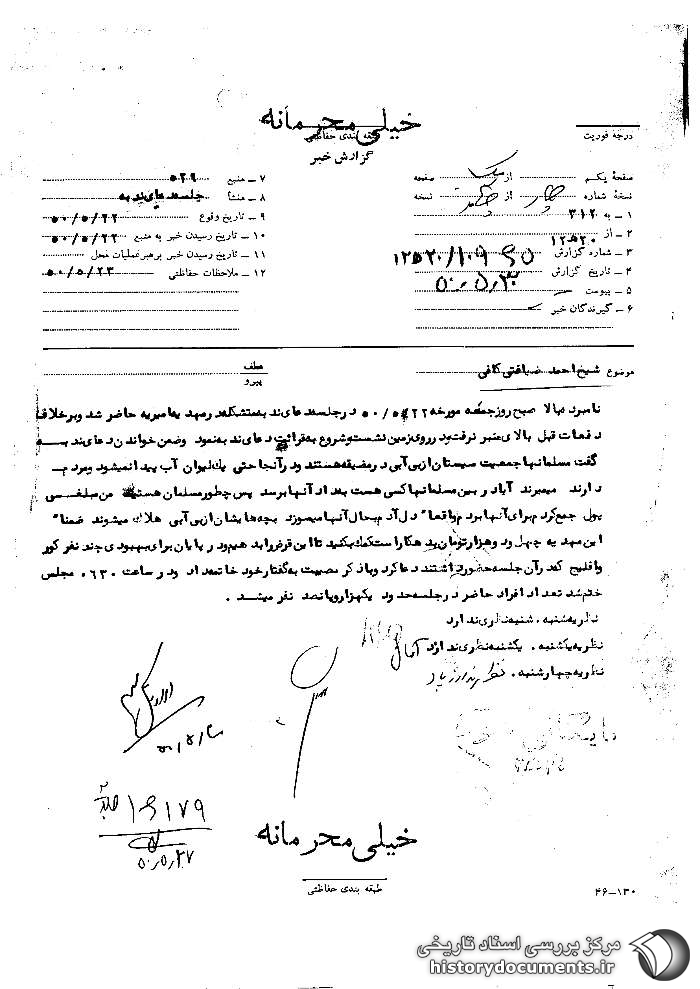 خیلی محرمانه
طبقه بندی حفاظتی
گزارش خبر
درجه فوریت
صفحهٔ یکم از یک صفحه
نسخهٔ شماره چهار از نسخه
۱ – به ۳۱۲
۲ – از ۱۲۵۲۰
۳ – شماره گزارش
۴ – تاریخ گزارش
۵ – پیوست
۶ – گیرندگان خبر
۷ – منبع ۵۲۹
۸ – منشأ جلسه دعای ندبه
۹ – تاریخ وقوع ۵۰/۵/۲۲
۱۰ – تاریخ رسیدن خبر به منبع ۵۰/۵/۲۲
۱۱ – تاریخ رسیدن خبر برهبر عملیات محل
۱۲ – ملاحظات حفاظتی ۵۰/۵/۲۳
موضوع شیخ احمد ضیافتی کافی
عطف
پیرو
نامبرده بالا صبح روز جمعه مورخه ۵۰/۵/۲۲ در جلسه دعای ندبه متشکله در مهدیه امیریه حاضر شد و برخلاف
دفعات قبل بالای منبر نرفت و در روی زمین نشست و شروع به قرائت دعای ندبه نمود وضمن خواندن دعای ندبه
گفت مسلمانها جمعیت سیستان از بی آبی در مضیقه هستند و در آنجا حتی یک لیوان آب پیدا نمیشود و مردم
دارند میمیرند آیا در بین مسلمانها کسی هست بداد آنها برسد پس چطور مسلمان هستید من مبلغی
پول جمع کردم برای آنها بردم واقعاً دل آدم بحال آنها میسوزد بچه هایشان از بی آبی هلاک میشوند ضمناً
این مهدیه چهل و دو هزار تومان بدهکار است کمک بکنید تا این قرض را بدهیم و در پایان برای بهبودی چند نفر کور
وافلیج که در آن جلسه حضور داشتند دعا کرد و با ذکر مصیبت به گفتار خود خاتمه داد و در ساعت ۰۶۳۰ مجلس
ختم شد تعداد افراد حاضر در جلسه حدود یکهزار و پانصد نفر میشد .
نظریه شنبه . شنبه نظری ندارد
نظریه یکشنبه . یکشنبه نظری ندارد
نظریه چهارشنبه . نظری ندارد
۱۶۱۷۹
۵۰/۵/۲۷
خیلی محرمانه
طبقه بندی حفاظتی
۴۶–۱۳۰
مرکز بررسی اسناد تاریخی
historydocuments.ir